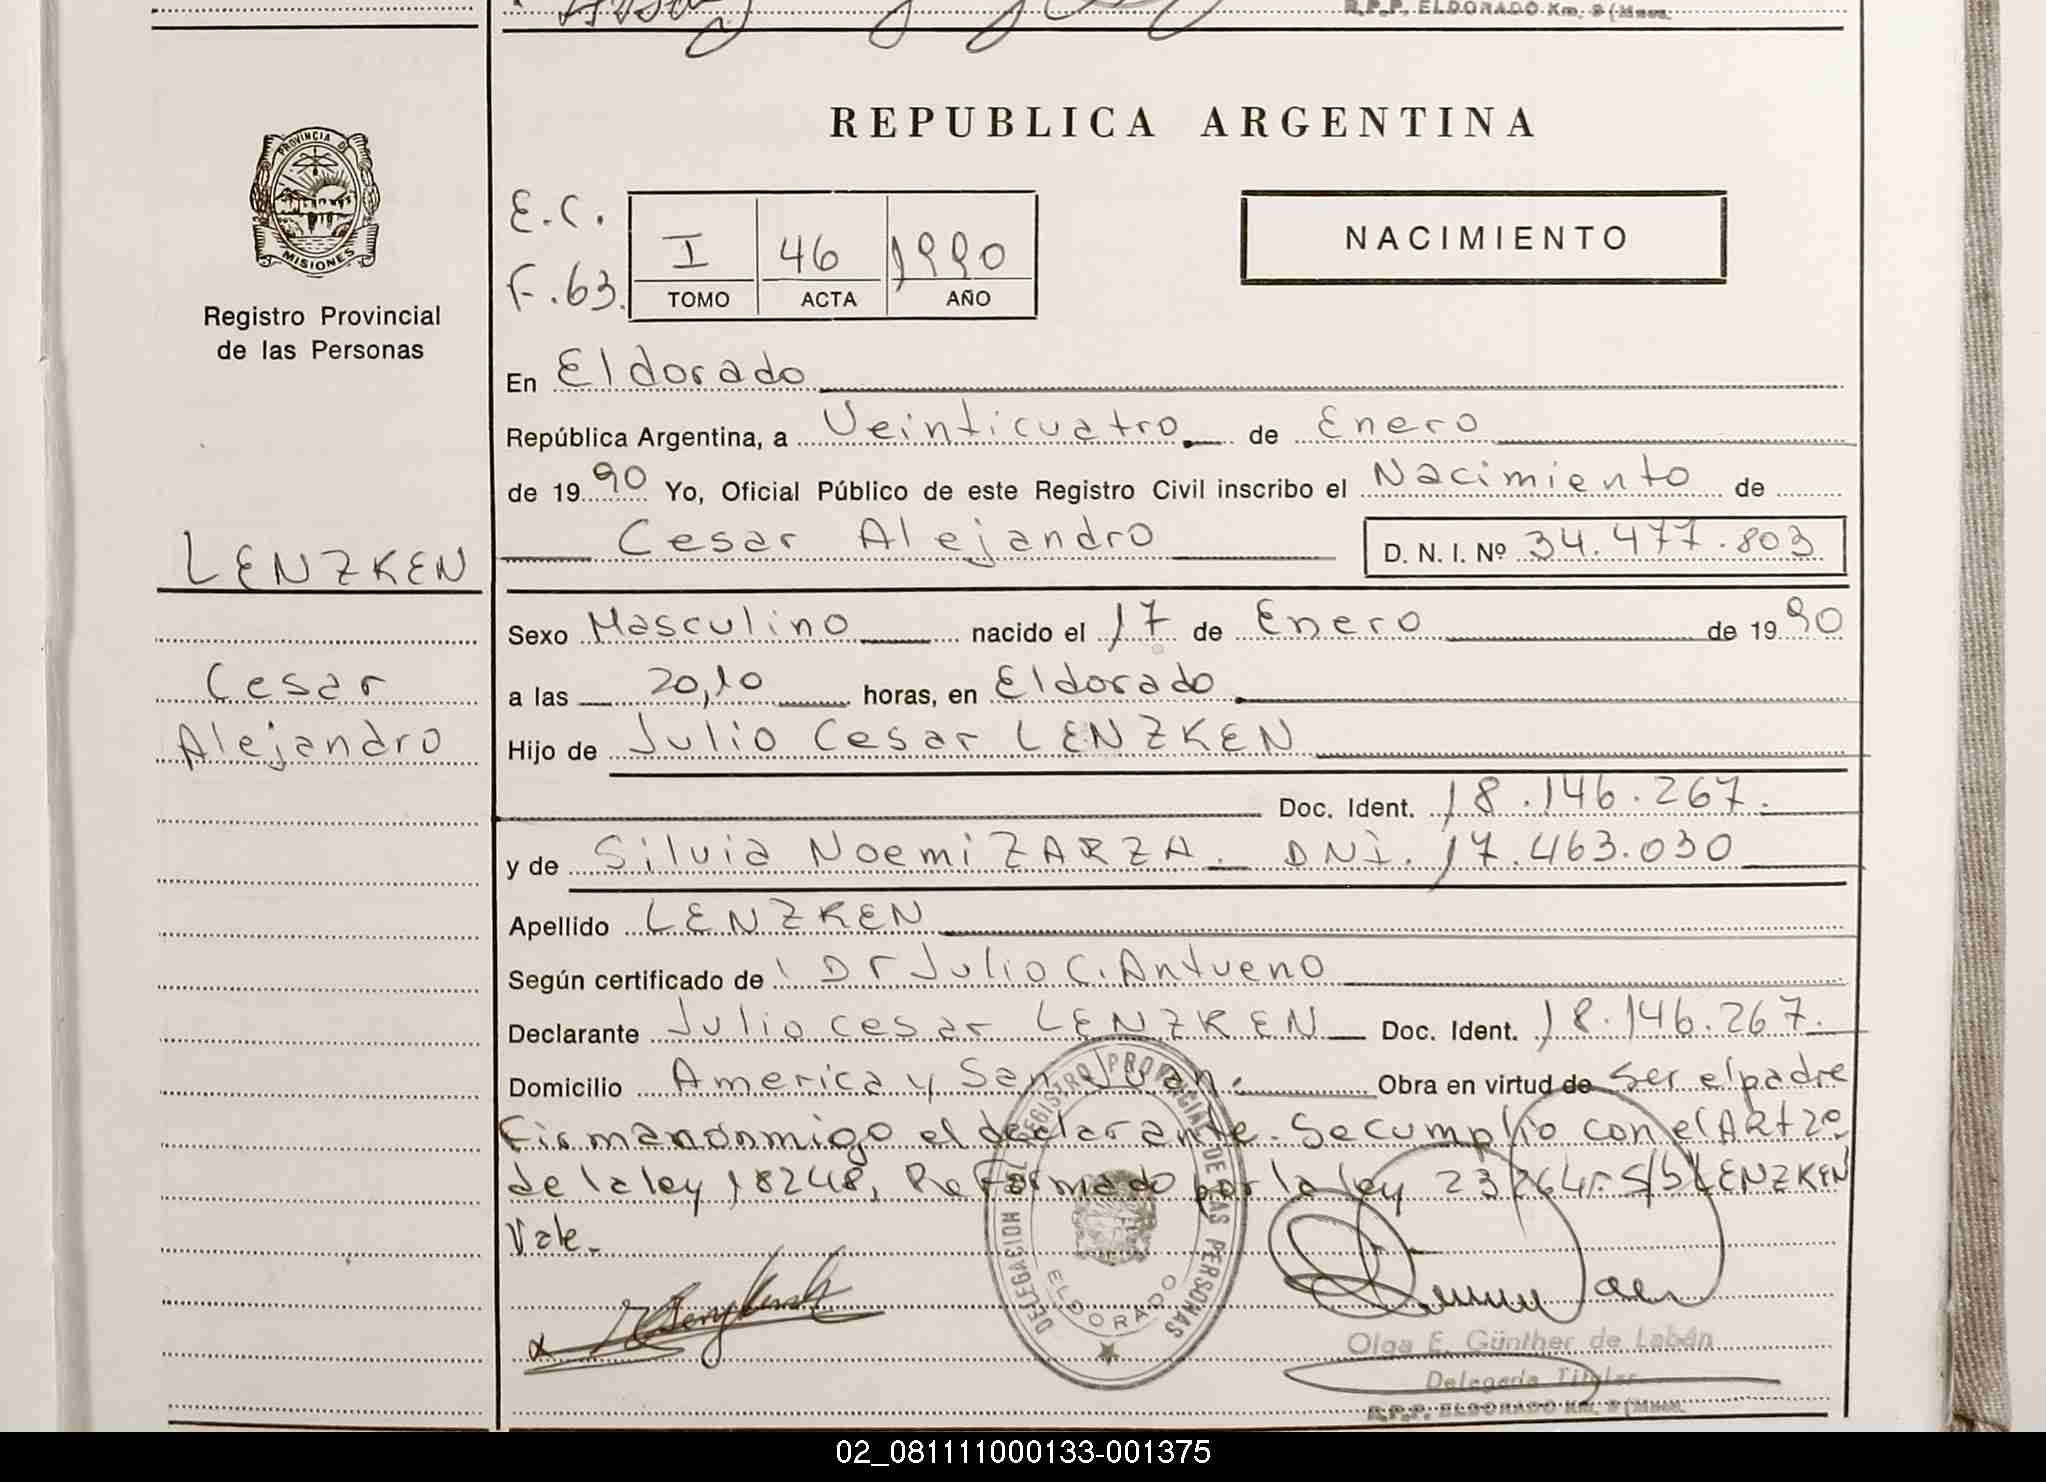 R.P.P. ELDORADO Km. 9 (Mnes.
REPUBLICA ARGENTINA
PROVINCIA DE
MISIONES
Registro Provincial
de las Personas
E.C.
F.63.
I 46 1990
TOMO ACTA AÑO
NACIMIENTO
En Eldorado
República Argentina, a Veinticuatro de Enero
de 1990 Yo, Oficial Público de este Registro Civil inscribo el Nacimiento de
Cesar Alejandro D. N. I. Nº 34.477.803
LENZKEN
Cesar
Alejandro
Sexo Masculino nacido el 17 de Enero de 1990
a las 20,10 horas, en Eldorado
Hijo de Julio Cesar LENZKEN
Doc. Ident. 18.146.267.
y de Silvia Noemi ZARZA. DNI. 17.463.030
Apellido LENZKEN
Según certificado de Dr Julio C. Antueno
Declarante Julio Cesar LENZKEN Doc. Ident. 18.146.267.
Domicilio America y San Juan. Obra en virtud de ser el padre
Firmanonmigo el declarante. Se cumplio con el ARt 2º
de la ley 18248, Reformado por la ley 23264. S/b LENZKEN
Vale.
DELEGACION DEL REGISTRO PROVINCIAL DE LAS PERSONAS
ELDORADO
Olga E. Günther de Labán
Delegada Titular
R.P.P. ELDORADO Km. 9 (Mnes.
02_081111000133-001375